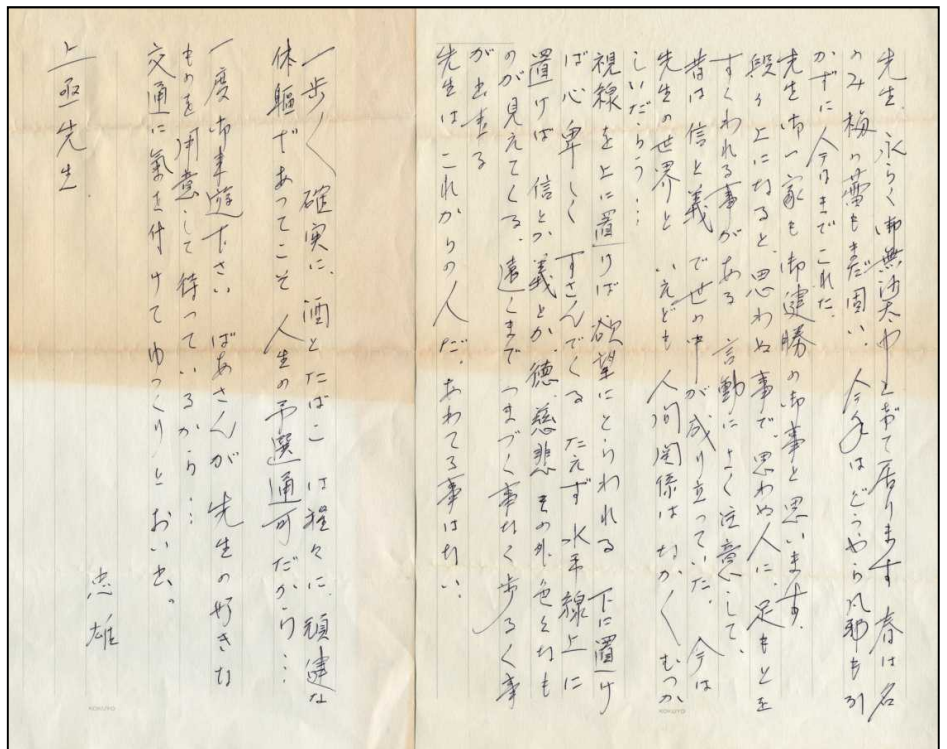 先生、永らく御無沙汰申し上げて居ります 春は名
のみ 梅の蕾もまだ固い、今年はどうやら風邪も引
かずに今日までこれた。
先生御一家も御健勝の御事と思います。
段々上になると、思わぬ事で、思わぬ人に、足もとを
すくわれる事がある 言動によく注意して、
昔は信と義で世の中が成り立っていた、今は
先生の世界と いえども 人間関係は なか〱むつか
しいだらう…
視線を上に置けば欲望にとらわれる 下に置け
ば心卑しく すさんでくる たえず 水平線上に
置けば 信とか義とか、徳、慈悲その外色々なも
のが見えてくる、遠くまで つまづく事なく歩る く事
が出来る
先生は これからの人だ、あわてる事はない、
一歩〱確実に、酒とたばこは程々に、頑健な
体軀であってこそ 人生の予選通可だから…
一度御来遊下さい ばあさんが 先生の好きな
ものを用意して待っているから…
交通に氣を付けて ゆっくりと おい出。
忠雄
上 先生
KOKUYO
KOKUYO